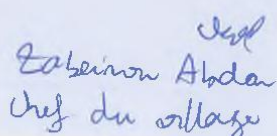 Zabeirou Abdou
Chef du village